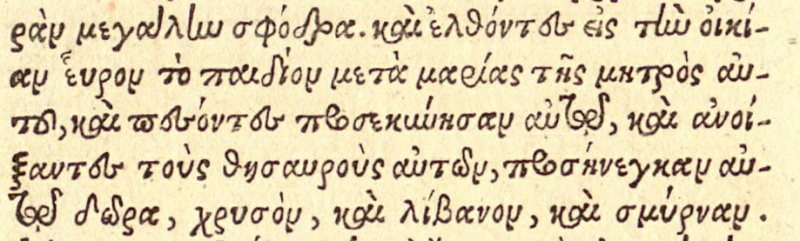 ρὰν μεγάλην σφόδρα. καὶ ἐλθόντες εἰς τὴν οἰκί-
αν εὗρον τὸ παιδίον μετὰ μαρίας τῆς μητρὸς αὐ-
τοῦ, καὶ πεσόντες προσεκύνησαν αὐτῷ, καὶ ἀνοί-
ξαντες τοὺς θησαυροὺς αὐτῶν, προσήνεγκαν αὐ-
τῷ δῶρα, χρυσὸν, καὶ λίβανον, καὶ σμύρναν.